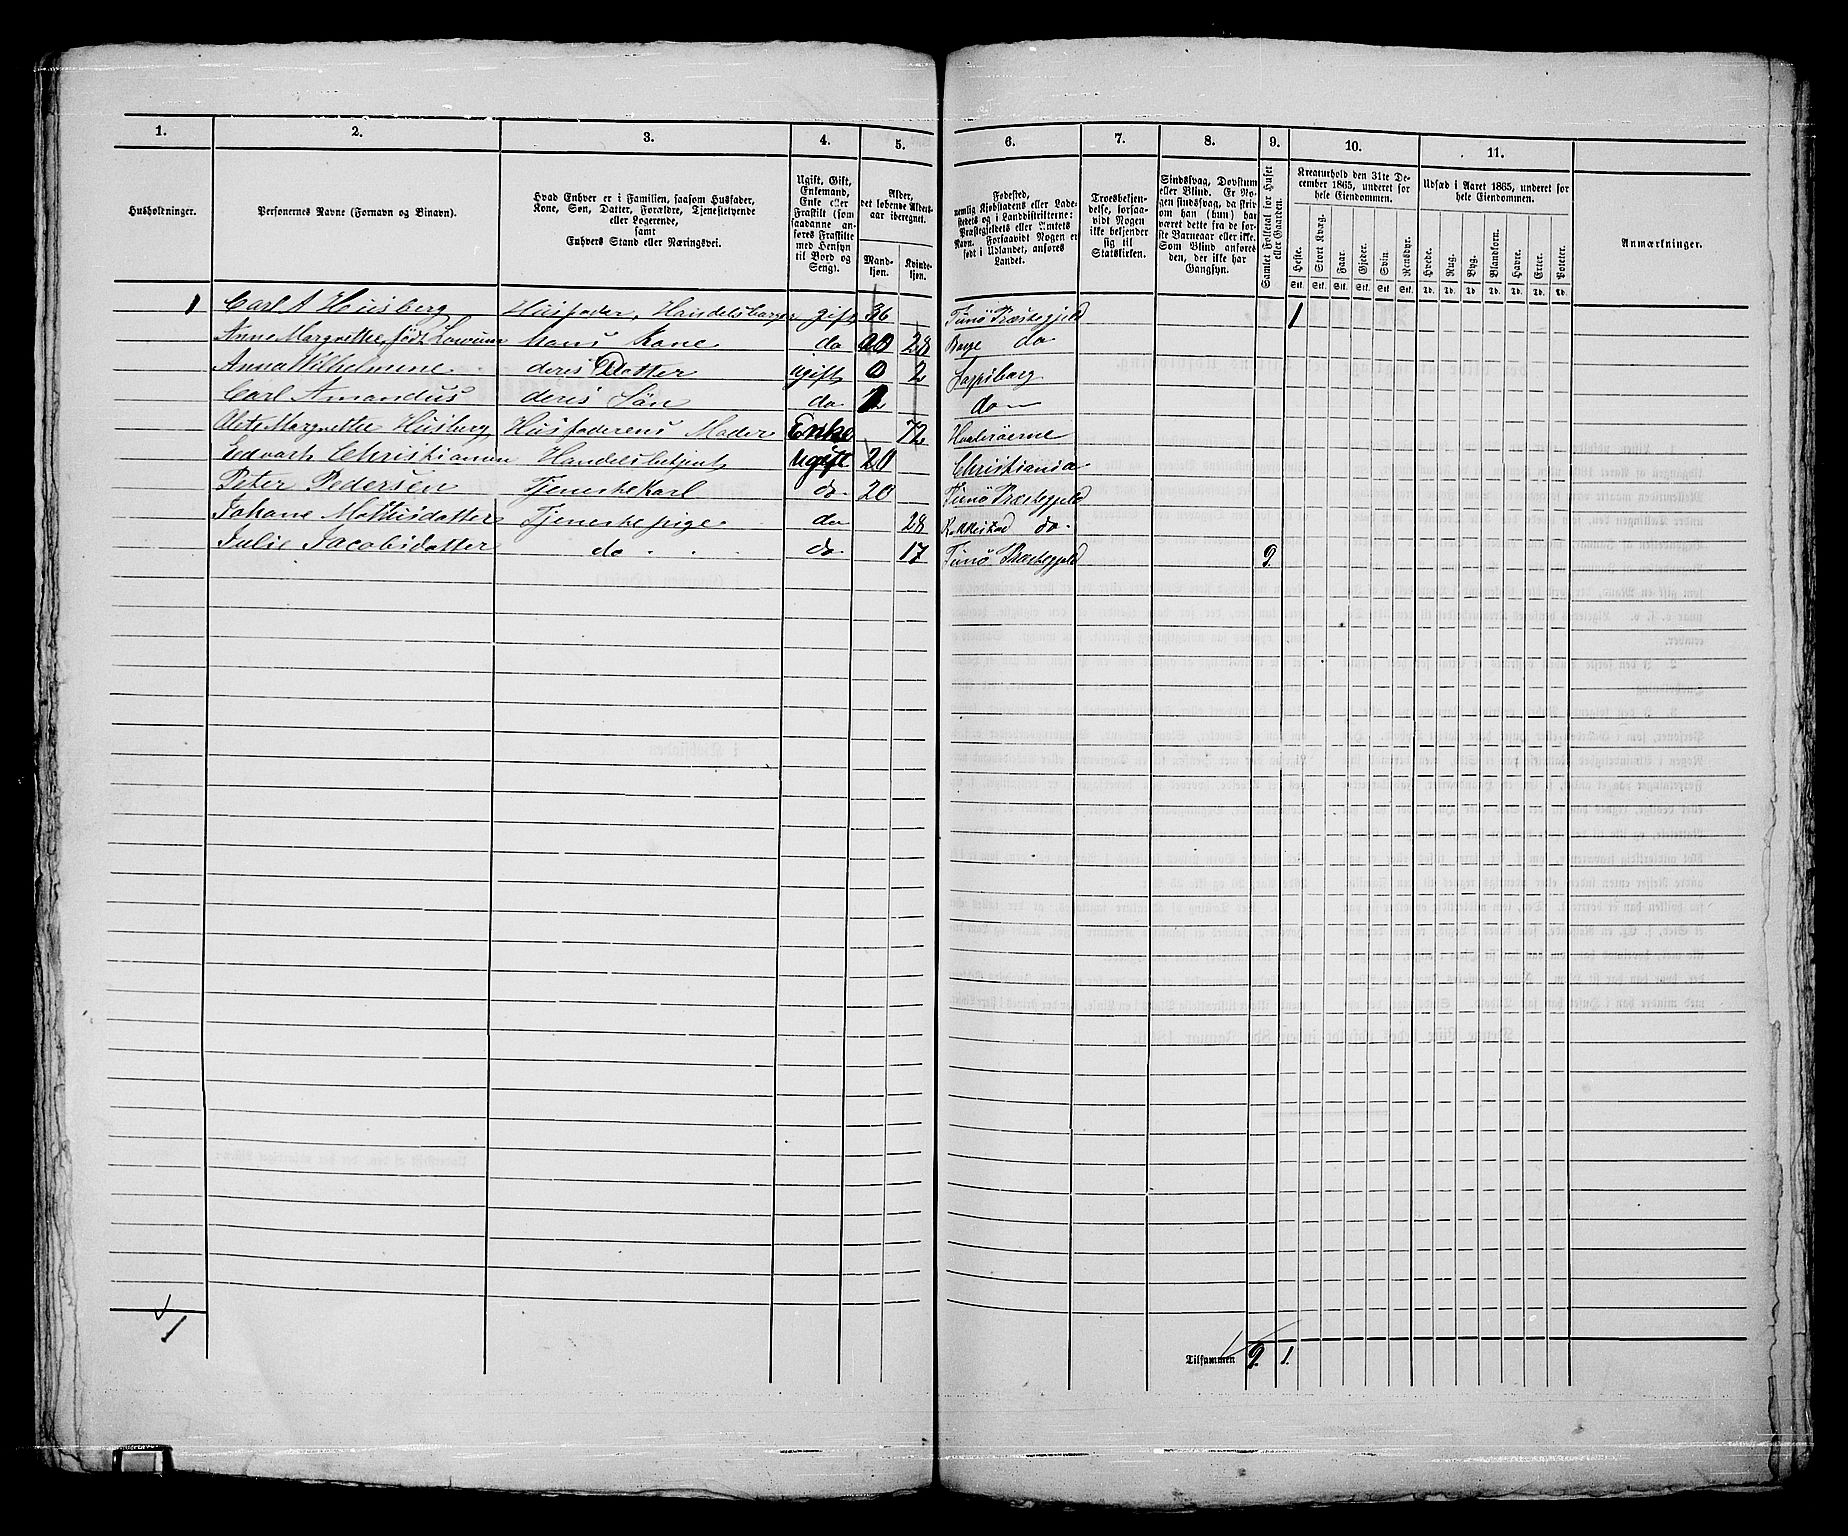 1. 2. 3. 4. 5. 6. 7. 8. 9. 10. 11.
Husholdninger.
Personernes Navne (Fornavn og Binavn).
Hvad Enhver er i Familien, saasom Husfader,
Kone, Søn, Datter, Forældre, Tjenestetyende
eller Logerende,
samt
Enhvers Stand eller Næringsvei.
Ugift, Gift,
Enkemand,
Enke eller
Fraskilt (som
saadanne an-
føres Fraskilte
med Hensyn
til Bord og
Seng).
Alder,
det løbende Alders-
aar iberegnet.
Mand-
kjøn.
Kvinde-
kjøn.
Fødested,
nemlig Kjøbstadens eller Lade-
stedets og i Landdistrikterne:
Præstegjeldets eller Amtets
Navn. Forsaavidt Nogen er
født i Udlandet, anføres
Landet.
Troesbekjen-
delse, forsaa-
vidt Nogen
ikke bekjender
sig til
Statskirken.
Sindssvag, Døvstum
eller Blind. Er No-
gen sindssvag, da skriv
om han (hun) har
været dette fra de før-
ste Barneaar eller ikke.
Som Blind anføres
den, der ikke har
Gangsyn.
Samlet Folketal for Huset
eller Gaarden.
Kreaturhold den 31te De-
cember 1865, underet for
hele Eiendommen.
Heste. Stort Kvæg. Faar. Gjeder. Sviin. Rensdyr.
Stk. Stk. Stk. Stk. Stk. Stk.
Udsæd i Aaret 1865, underet for
hele Eiendommen.
Hvede. Rug. Byg. Blandkorn. Havre. Erter. Poteter.
Td. Td. Td. Td. Td. Td. Td.
Anmærkninger.
1 Carl A Husberg Husfader, Handelsborger gift 36 Præstegjeld 1
Anne Margrethe, født Hans Kone do 28 Borge do
Anna Wilhelmine deres Datter ugift 2
Carl Amandus deres Søn do do
Margrethe Husberg Husfaderens Moder Enke 72
Christiansen Handelsbetjent Ugift 20 Christiania
Peter Pedersen Tjenestekarl do 20 Præstegjeld
Johane Tjenestepige do 28 do
Julie Jacobsdatter do do 17 Præstegjeld 9
1
Tilsammen 9 1.